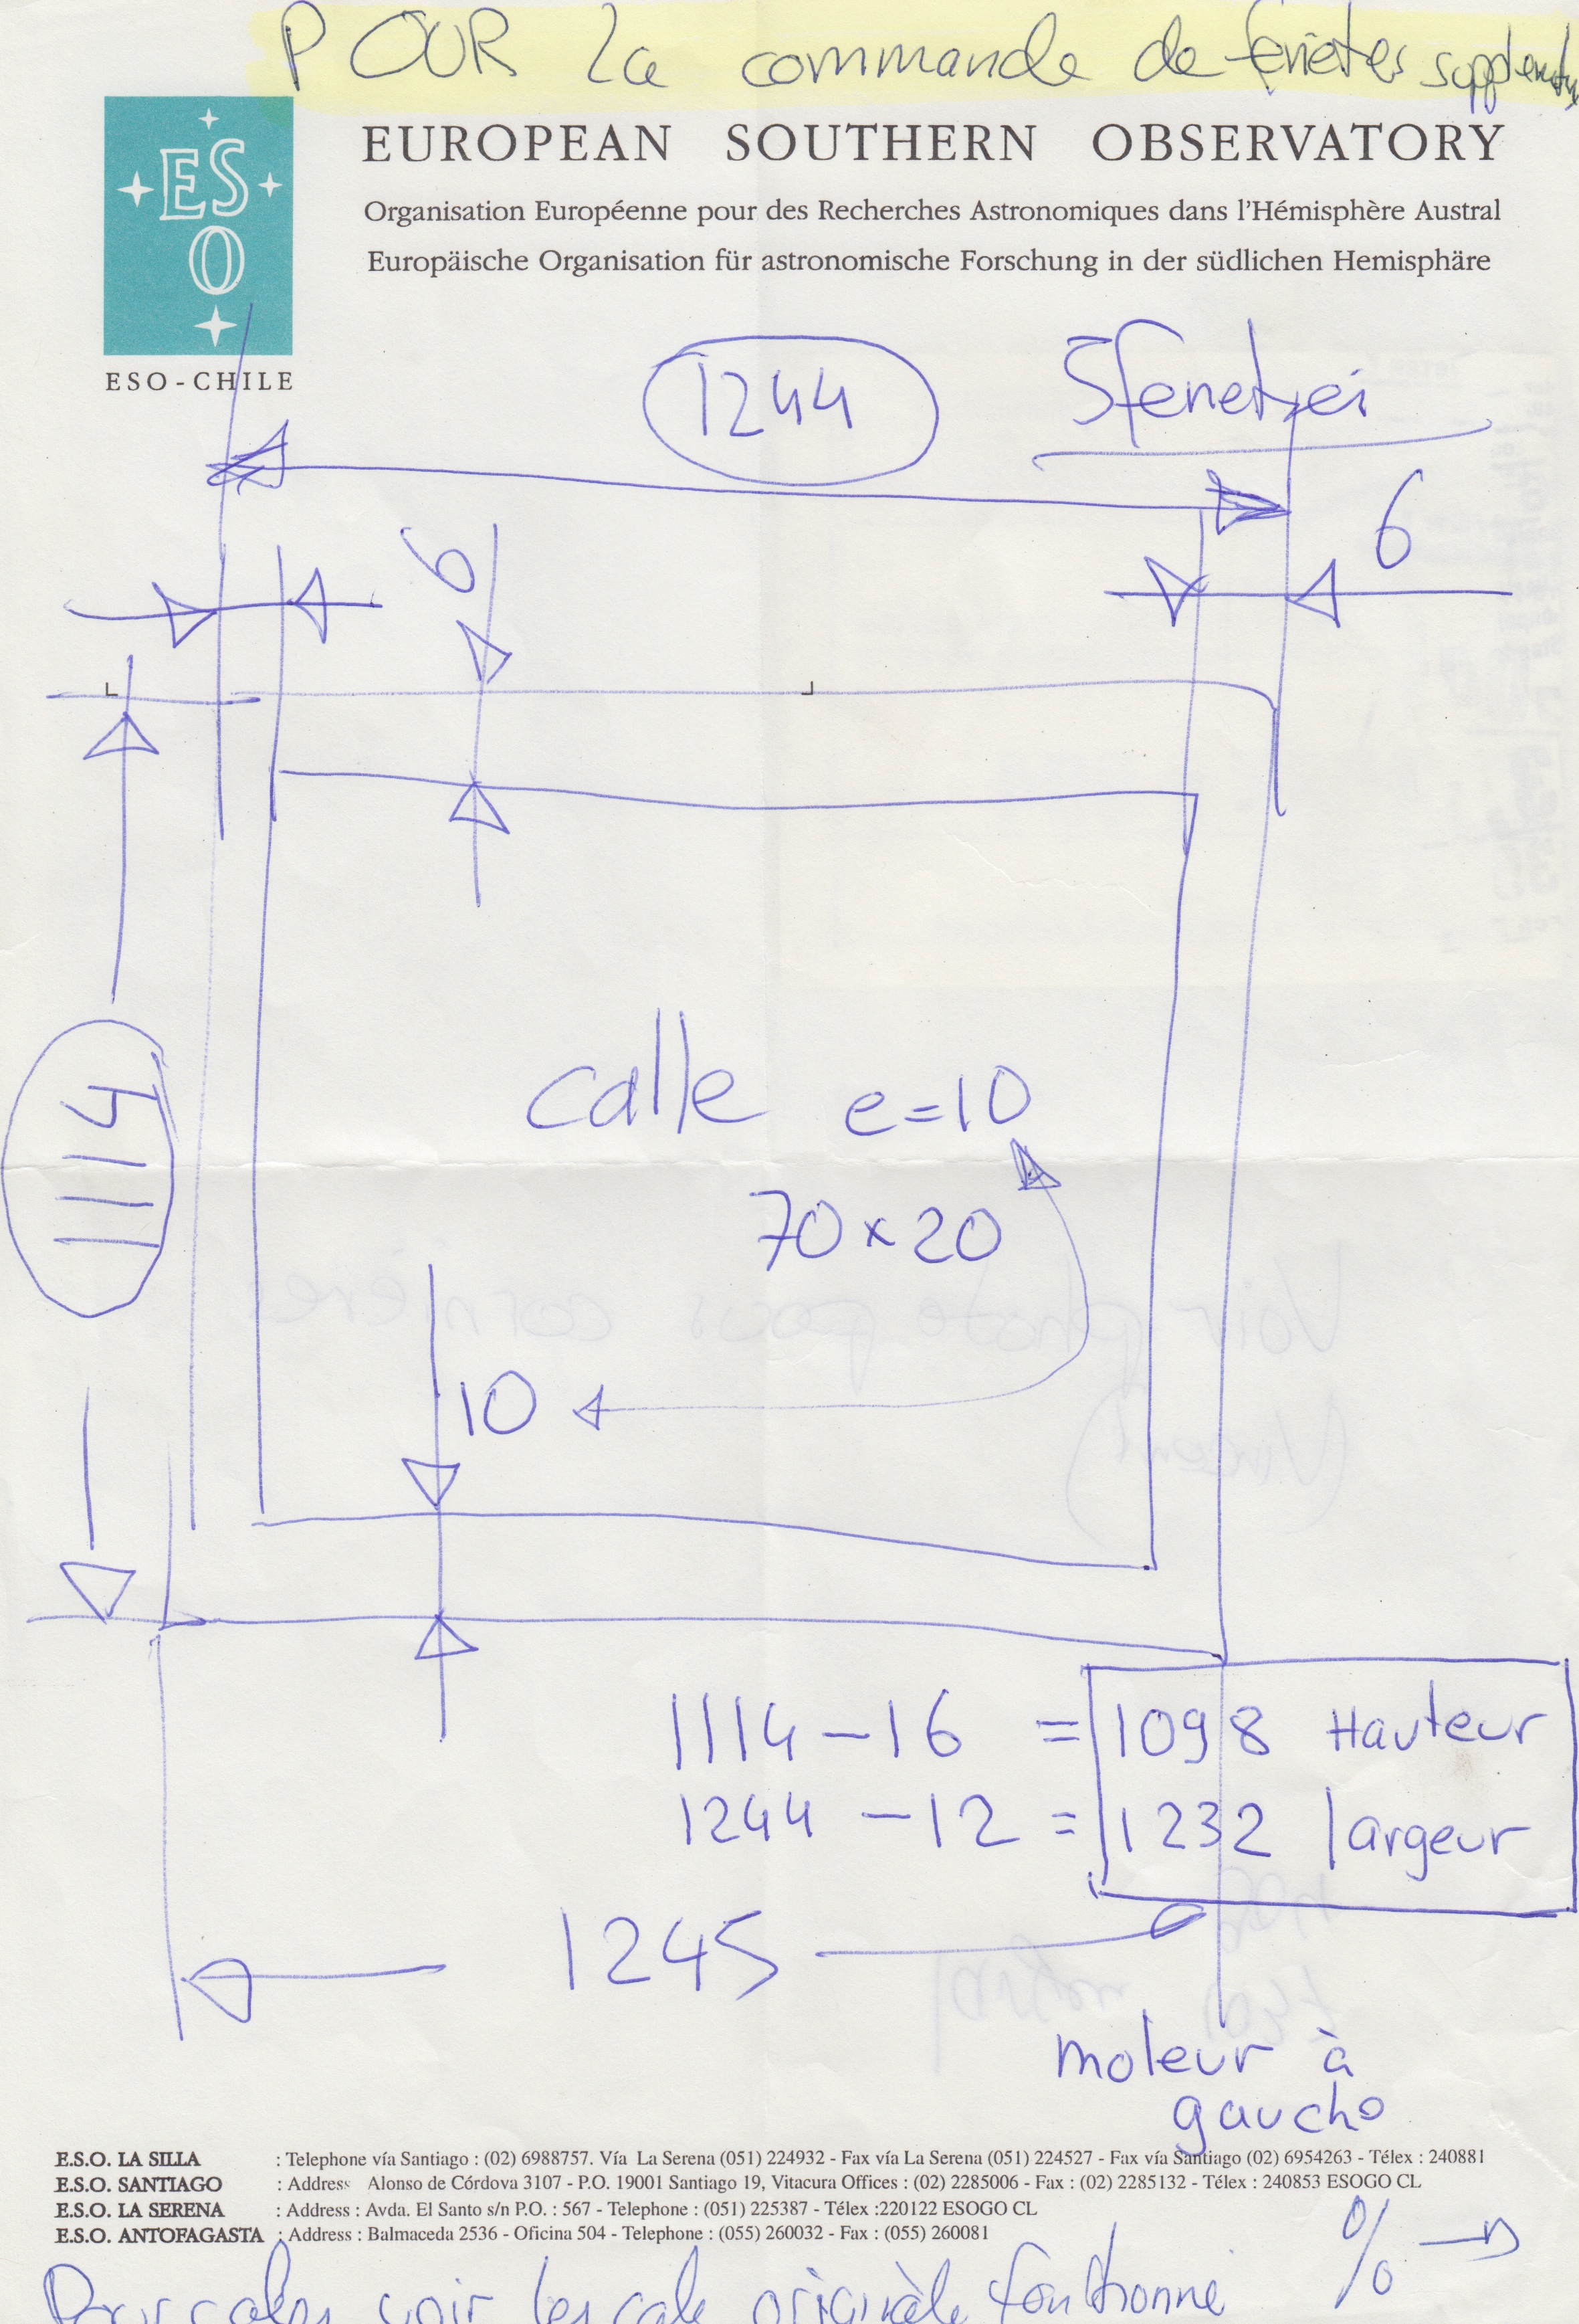 POUR la commande de fenêtres
ESO
EUROPEAN SOUTHERN OBSERVATORY
Organisation Européenne pour des Recherches Astronomiques dans l'Hémisphère Austral
Europäische Organisation für astronomische Forschung in der südlichen Hemisphäre
ESO-CHILE
1244
5 fenetres
6
6
1114
calle e=10
70 x 20
10
1114 - 16 = 1098 Hauteur
1244 - 12 = 1232 largeur
1245
moteur à
gauche
E.S.O. LA SILLA : Telephone vía Santiago : (02) 6988757. Vía La Serena (051) 224932 - Fax vía La Serena (051) 224527 - Fax vía Santiago (02) 6954263 - Télex : 240881
E.S.O. SANTIAGO : Address Alonso de Córdova 3107 - P.O. 19001 Santiago 19, Vitacura Offices : (02) 2285006 - Fax : (02) 2285132 - Télex : 240853 ESOGO CL
E.S.O. LA SERENA : Address : Avda. El Santo s/n P.O. : 567 - Telephone : (051) 225387 - Télex :220122 ESOGO CL
E.S.O. ANTOFAGASTA : Address : Balmaceda 2536 - Oficina 504 - Telephone : (055) 260032 - Fax : (055) 260081
%
Pour voir les